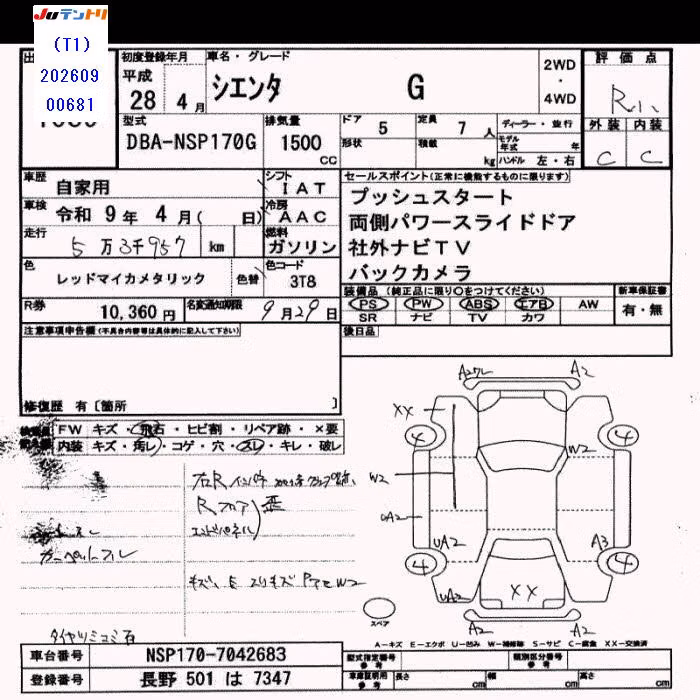 JUテントリ
(T1)
202609
00681
初度登録年月
平成
28 4月
車名・グレード
シエンタ G
2WD
・
4WD
評価点
R
外装 内装
C C
型式
DBA-NSP170G
排気量
1500
CC
ドア 5
形状
定員 7 人
積載 kg
ディーラー・並行
モデル年式 年
ハンドル 左・右
車歴
自家用
シフト
IAT
車検
令和 9年 4月( 日)
冷房
AAC
走行
5万3千957 km
燃料
ガソリン
色
レッドマイカメタリック
色替
色コード
3T8
R券
10,360 円
名変通知期限
9月29日
セールスポイント(正常に機能するものに限ります)
プッシュスタート
両側パワースライドドア
社外ナビTV
バックカメラ
装備品 (純正品に限り○をつけてください)
PS PW ABS エアB AW
SR ナビ TV カワ
新車保証書
有・無
後日品
注意事項申告欄(不具合内容等は具体的に記入して下さい)
修復歴 有〔箇所 〕
FW キズ・飛石・ヒビ割・リペア跡・×要
内装 キズ・汚レ・コゲ・穴・スレ・キレ・破レ
Rフロア
エンドパネル
歪
カーペットスレ
A2 A2
XX
4 4
W2 W2
A3
UA2
4 4
XX
UA2
A2 A2
スペア
A-キズ E-エクボ U-凹み W-補修跡 S-サビ C-腐食 XX-交換済
車台番号 NSP170-7042683
登録番号 長野 501 は 7347
型式指定番号
参考
類別区分番号
参考
車庫証明用
参考
長さ cm 幅 cm 高さ cm